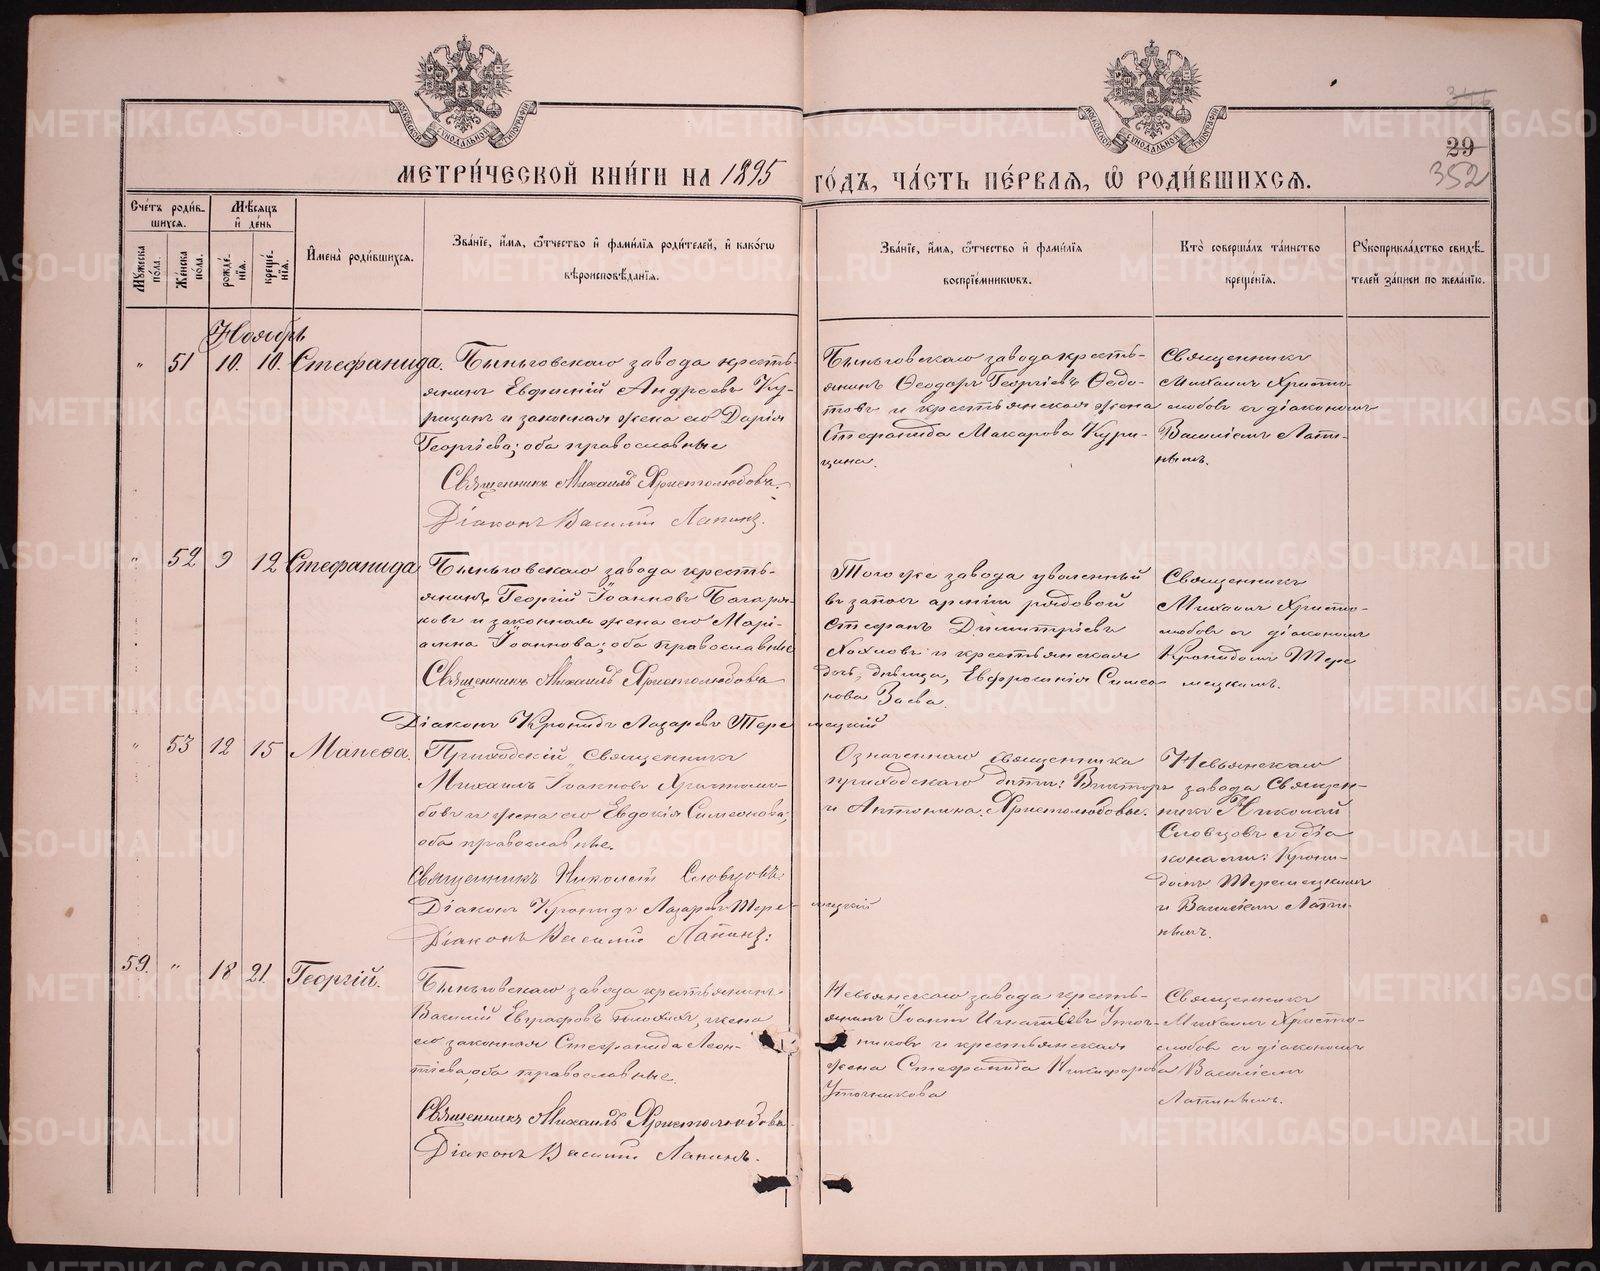 346
29
352
МЕТРИ́ЧЕСКОЙ КНИ́ГИ НА 1895 ГО́ДЪ, ЧА́СТЬ ПЕ́РВАЯ, Ѡ РОДИ́ВШИХСЯ.
Сче́тъ роди́в-
шихся.
Мѣ́сяцъ
и де́нь
Мꙋжеска
по́ла.
Же́нска
по́ла.
рожде́-
нїя.
креще́-
нїя.
Имена̀ роди́вшихся.
Зва́нїе, и́мя, ѻ́тчество и фами́лїя роди́телей, и како́гѡ
вѣроисповѣ́данїя.
Зва́нїе, и́мя, ѻ́тчество и фами́лїя
воспрїе́мникѡвъ.
Кто̀ соверша́лъ та́инство
креще́нїя.
Рꙋкоприкла́дство свидѣ́-
телей за́писи по жела́нїю.
Ноябрь
" 51 10. 10. Стефанида.
Быньговскаго завода кресть-
янинъ Евфимій Андреевъ Ку-
рицынъ и законная жена его Дарія
Георгіева; оба православные
Священникъ Михаилъ Христолюбовъ.
Діаконъ Василій Лапинъ.
Быньговскаго завода кресть-
янинъ Ѳеодоръ Георгіевъ Ѳедо-
товъ и крестьянская жена
Стефанида Макарова Кури-
цына.
Священникъ
Михаилъ Христо-
любовъ съ діакономъ
Василіемъ Лапи-
нымъ.
" 52 9 12 Стефанида
Быньговскаго завода кресть-
янинъ Георгій Іоанновъ
ковъ и законная жена его Марі-
анна Іоаннова; оба православные
Священникъ Михаилъ Христолюбовъ
Діаконъ Кронидъ Лазаревъ Тере мецкій
Того же завода уволенный
въ запасъ арміи рядовой
Стефанъ Димитріевъ
Хохловъ и крестьянская
дочь, дѣвица, Евфросинія Симео
нова Заева.
Священникъ
Михаилъ Христо-
любовъ съ діакономъ
Кронидомъ Тере
мецкимъ.
" 53 12 15 Манефа.
Приходскій священникъ
Михаилъ Іоанновъ Христолю-
бовъ и жена его Евдокія Симеонова;
оба православные.
Священникъ Николай Словцовъ.
Діаконъ Кронидъ Лазаревъ Тере- мецкій
Діаконъ Василій Лапинъ.
Означеннаго священника
приходскаго дѣти: Викторъ
и Антонина Христолюбовы.
Невьянскаго
завода Священ-
никъ Николай
Словцовъ съ діа
конами: Крони-
домъ Теремецкимъ
и Василіемъ Лапи-
нымъ.
59. " 18 21. Георгій.
Быньговскаго завода крестьянинъ
Василій Евграфовъ , жена
его законная Стефанида Леон-
тіева, оба православные.
Священникъ Михаилъ Христолюбовъ
Діаконъ Василій Лапинъ.
Невьянскаго завода кресть-
янинъ Іоаннъ Игнатіевъ Уточ-
никовъ и крестьянская
жена Стефанида Никифорова
Уточникова
Священникъ
Михаилъ Христо-
любовъ съ діакономъ
Василіемъ
Лапинымъ.